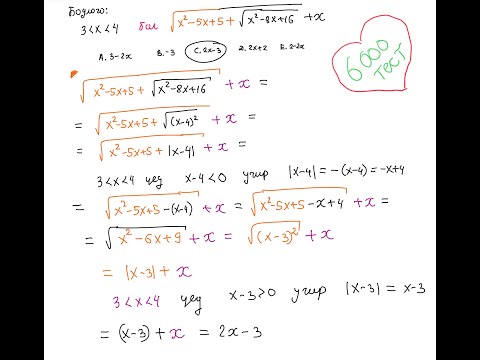 Бодлого:
3<x<4 бол √(x²-5x+5+√(x²-8x+16)) +x
A. 3-2x B. -3 C. 2x-3 D. 2x+2 E. 2-2x
6000 тест
√(x²-5x+5+√(x²-8x+16)) +x =
= √(x²-5x+5+√((x-4)²)) +x =
= √(x²-5x+5+|x-4|) +x =
3<x<4 үед x-4<0 учир |x-4|=-(x-4)=-x+4
= √(x²-5x+5-(x-4)) +x = √(x²-5x+5-x+4) +x =
= √(x²-6x+9) +x = √((x-3)²) +x
= |x-3|+x
3<x<4 үед x-3>0 учир |x-3|=x-3
= (x-3)+x = 2x-3